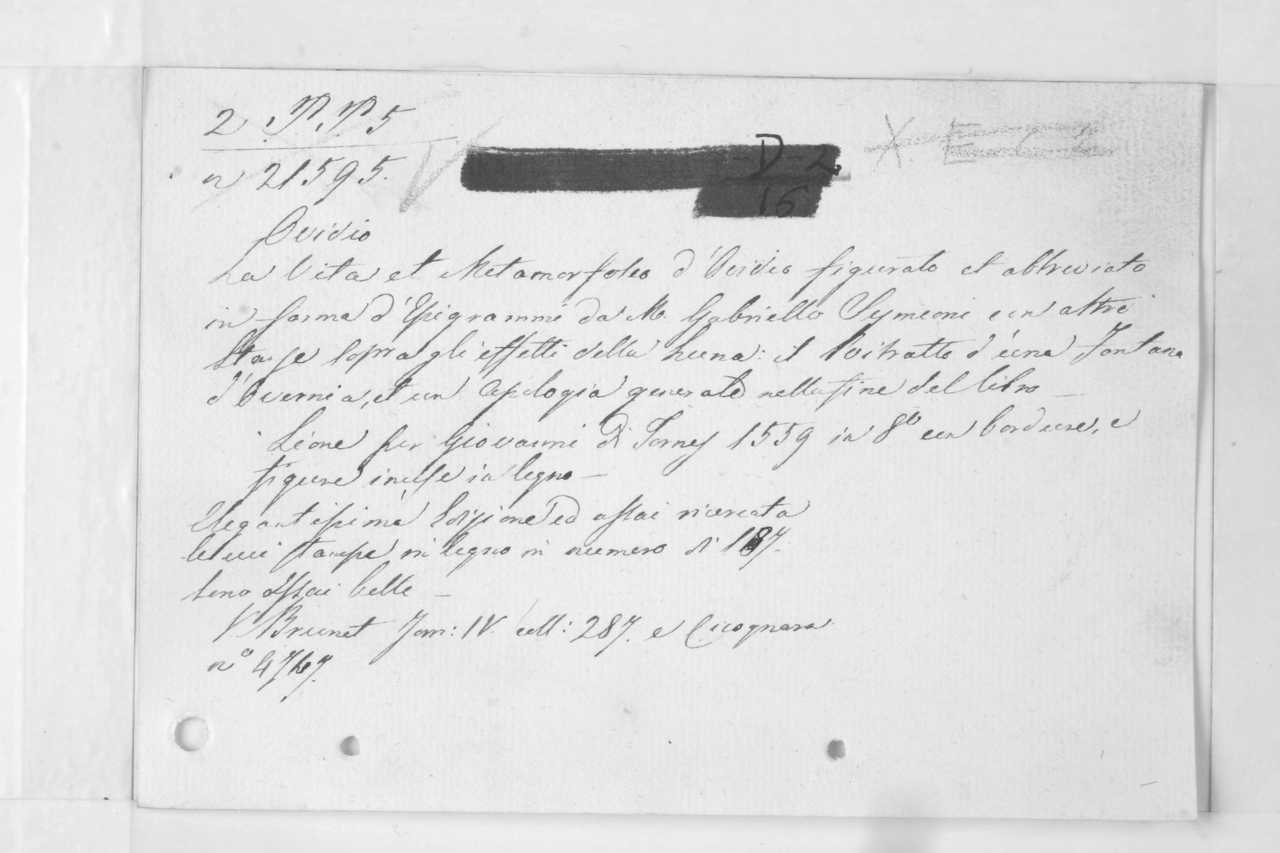 2 P. P. 5
n 21595.
-D-2
16
X. E
Ovidio
La Vita et Metamorfoseo d'Ovidio figurato et abbreviato
in forma d'Epigrammi da M. Gabriello Symeoni con altre
Stanze sopra gli effetti della Luna: il Ritratto d'una Fontana
d'Overnia, et un Apologia generale nella fine del libro
Lione per Giovanni di Tornes 1559 in 8º con bordure, e
figure incise in legno —
Elegantissima Edizione ed assai ricercata
le cui stampe in legno in numero di 187.
sono assai belle —
V. Brunet Tom: IV. coll: 287. e Cicognara
nº 4747.